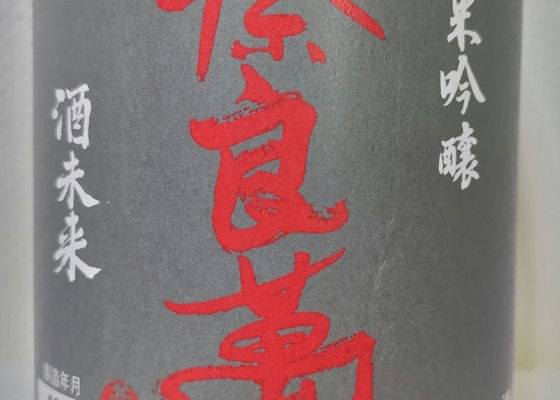 米吟醸
奈良萬
酒未来
製造年月